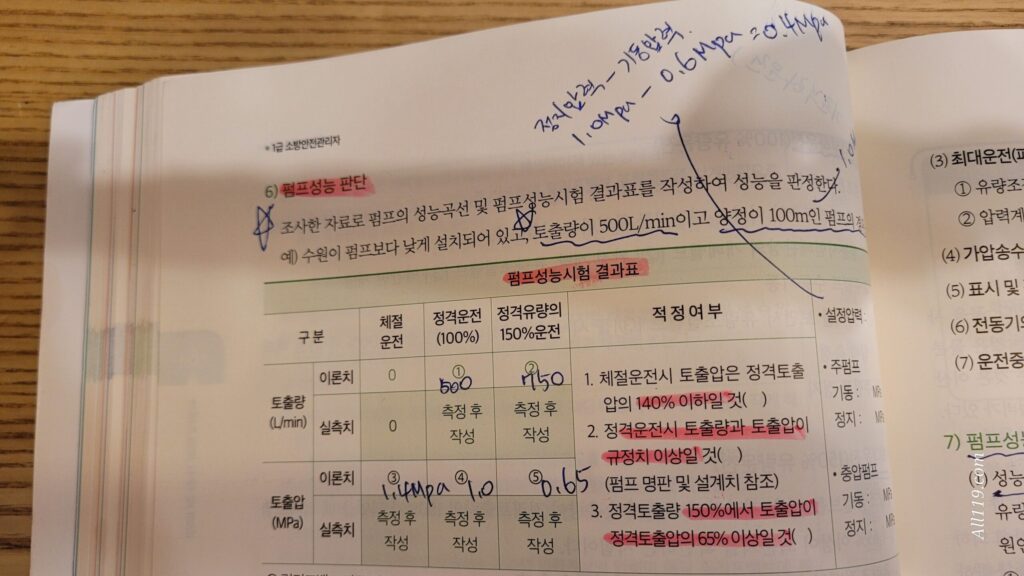 정지압력 - 기동압력.
1.0Mpa - 0.6Mpa = 0.4Mpa
* 1급 소방안전관리자
6) 펌프성능 판단
조사한 자료로 펌프의 성능곡선 및 펌프성능시험 결과표를 작성하여 성능을 판정한다.
예) 수원이 펌프보다 낮게 설치되어 있고, 토출량이 500L/min이고 양정이 100m인 펌프의
펌프성능시험 결과표
구 분 체절 운전 정격운전 (100%) 정격유량의 150%운전 적 정 여 부
토출량 (L/min) 이론치 0 ① 500 ② 750
실측치 0 측정 후 작성 측정 후 작성
토출압 (MPa) 이론치 ③ 1.4Mpa ④ 1.0 ⑤ 0.65
실측치 측정 후 작성 측정 후 작성 측정 후 작성
1. 체절운전시 토출압은 정격토출
압의 140% 이하일 것( )
2. 정격운전시 토출량과 토출압이
규정치 이상일 것( )
(펌프 명판 및 설계치 참조)
3. 정격토출량 150%에서 토출압이
정격토출압의 65% 이상일 것( )
• 설정압력
• 주펌프
기동 :
정지 :
• 충압펌프
기동 :
정지 :
(3) 최대운전
① 유량조
② 압력계
(4) 가압송수
(5) 표시 및
(6) 전동기의
(7) 운전중
7) 펌프성
성능
유량
원연
All119.com